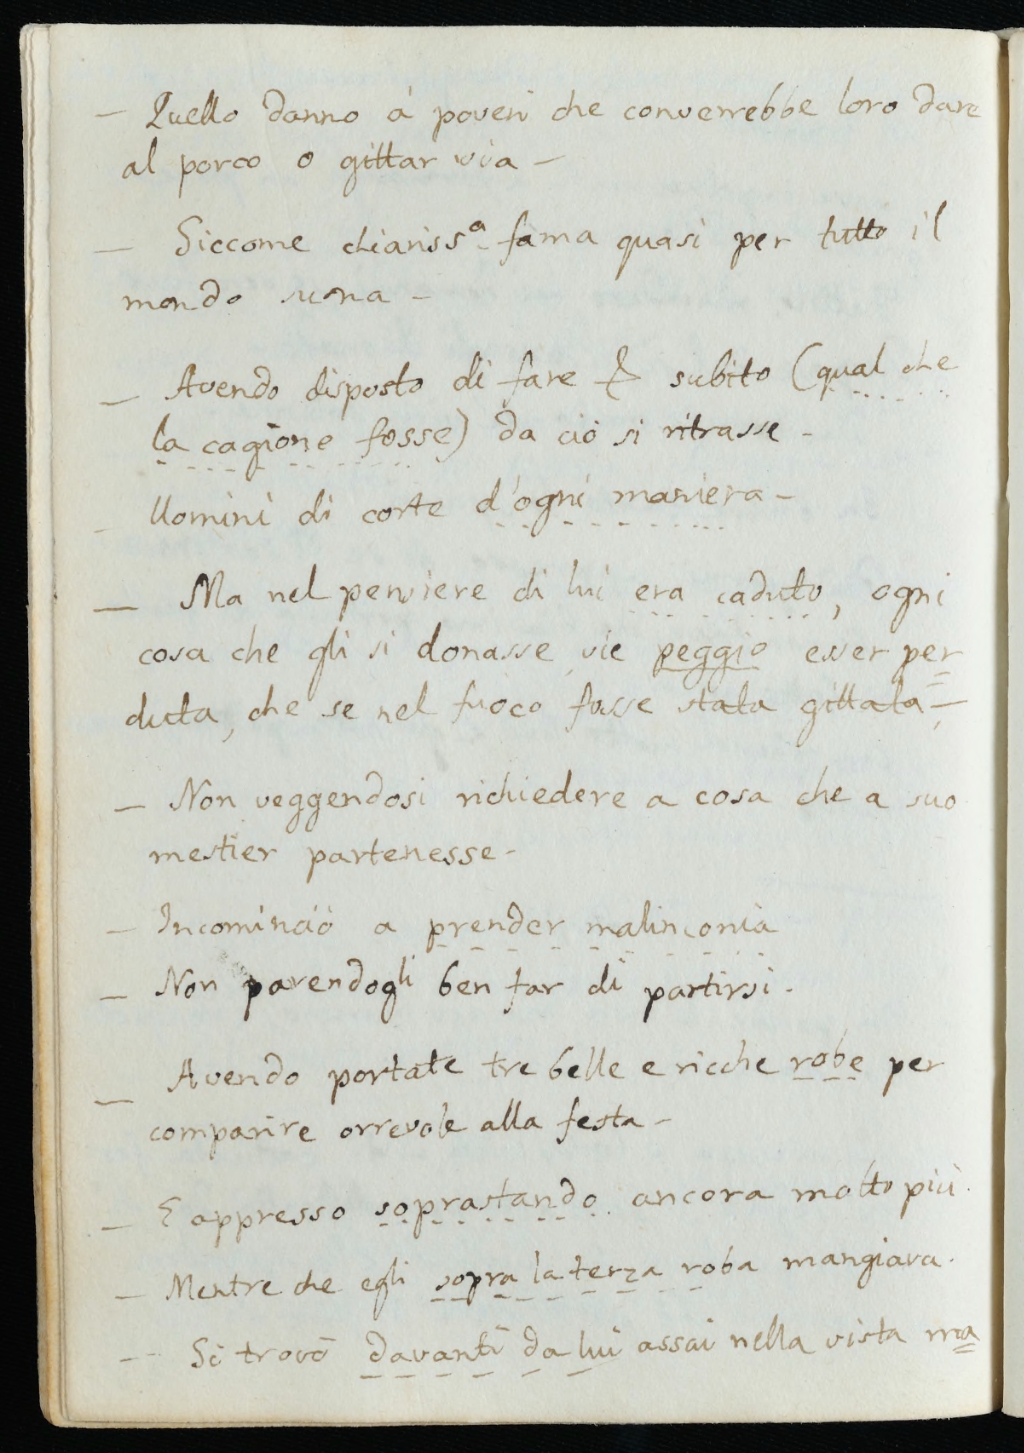 — Quello danno à poveri che converrebbe loro dare
al porco o gittar via —
— Siccome chiariss.ª fama quasi per tutto il
mondo suona —
— Avendo disposto di fare & subito (qual che
la cagione fosse) da ciò si ritrasse -
- Uomini di corte d'ogni maniera —
— Ma nel pensiere di lui era caduto, ogni
cosa che gli si donasse vie peggio esser per=
duta, che se nel fuoco fosse stata gittata —
— Non veggendosi richiedere a cosa che a suo
mestier partenesse -
— Incominciò a prender malinconia
— Non parendogli ben far di partirsi.
— Avendo portate tre belle e ricche robe per
comparire orrevole alla festa —
— E appresso soprastando ancora molto più.
— Mentre che egli sopra la terza roba mangiava.
— Si trovò davanti da lui assai nella vista ma=